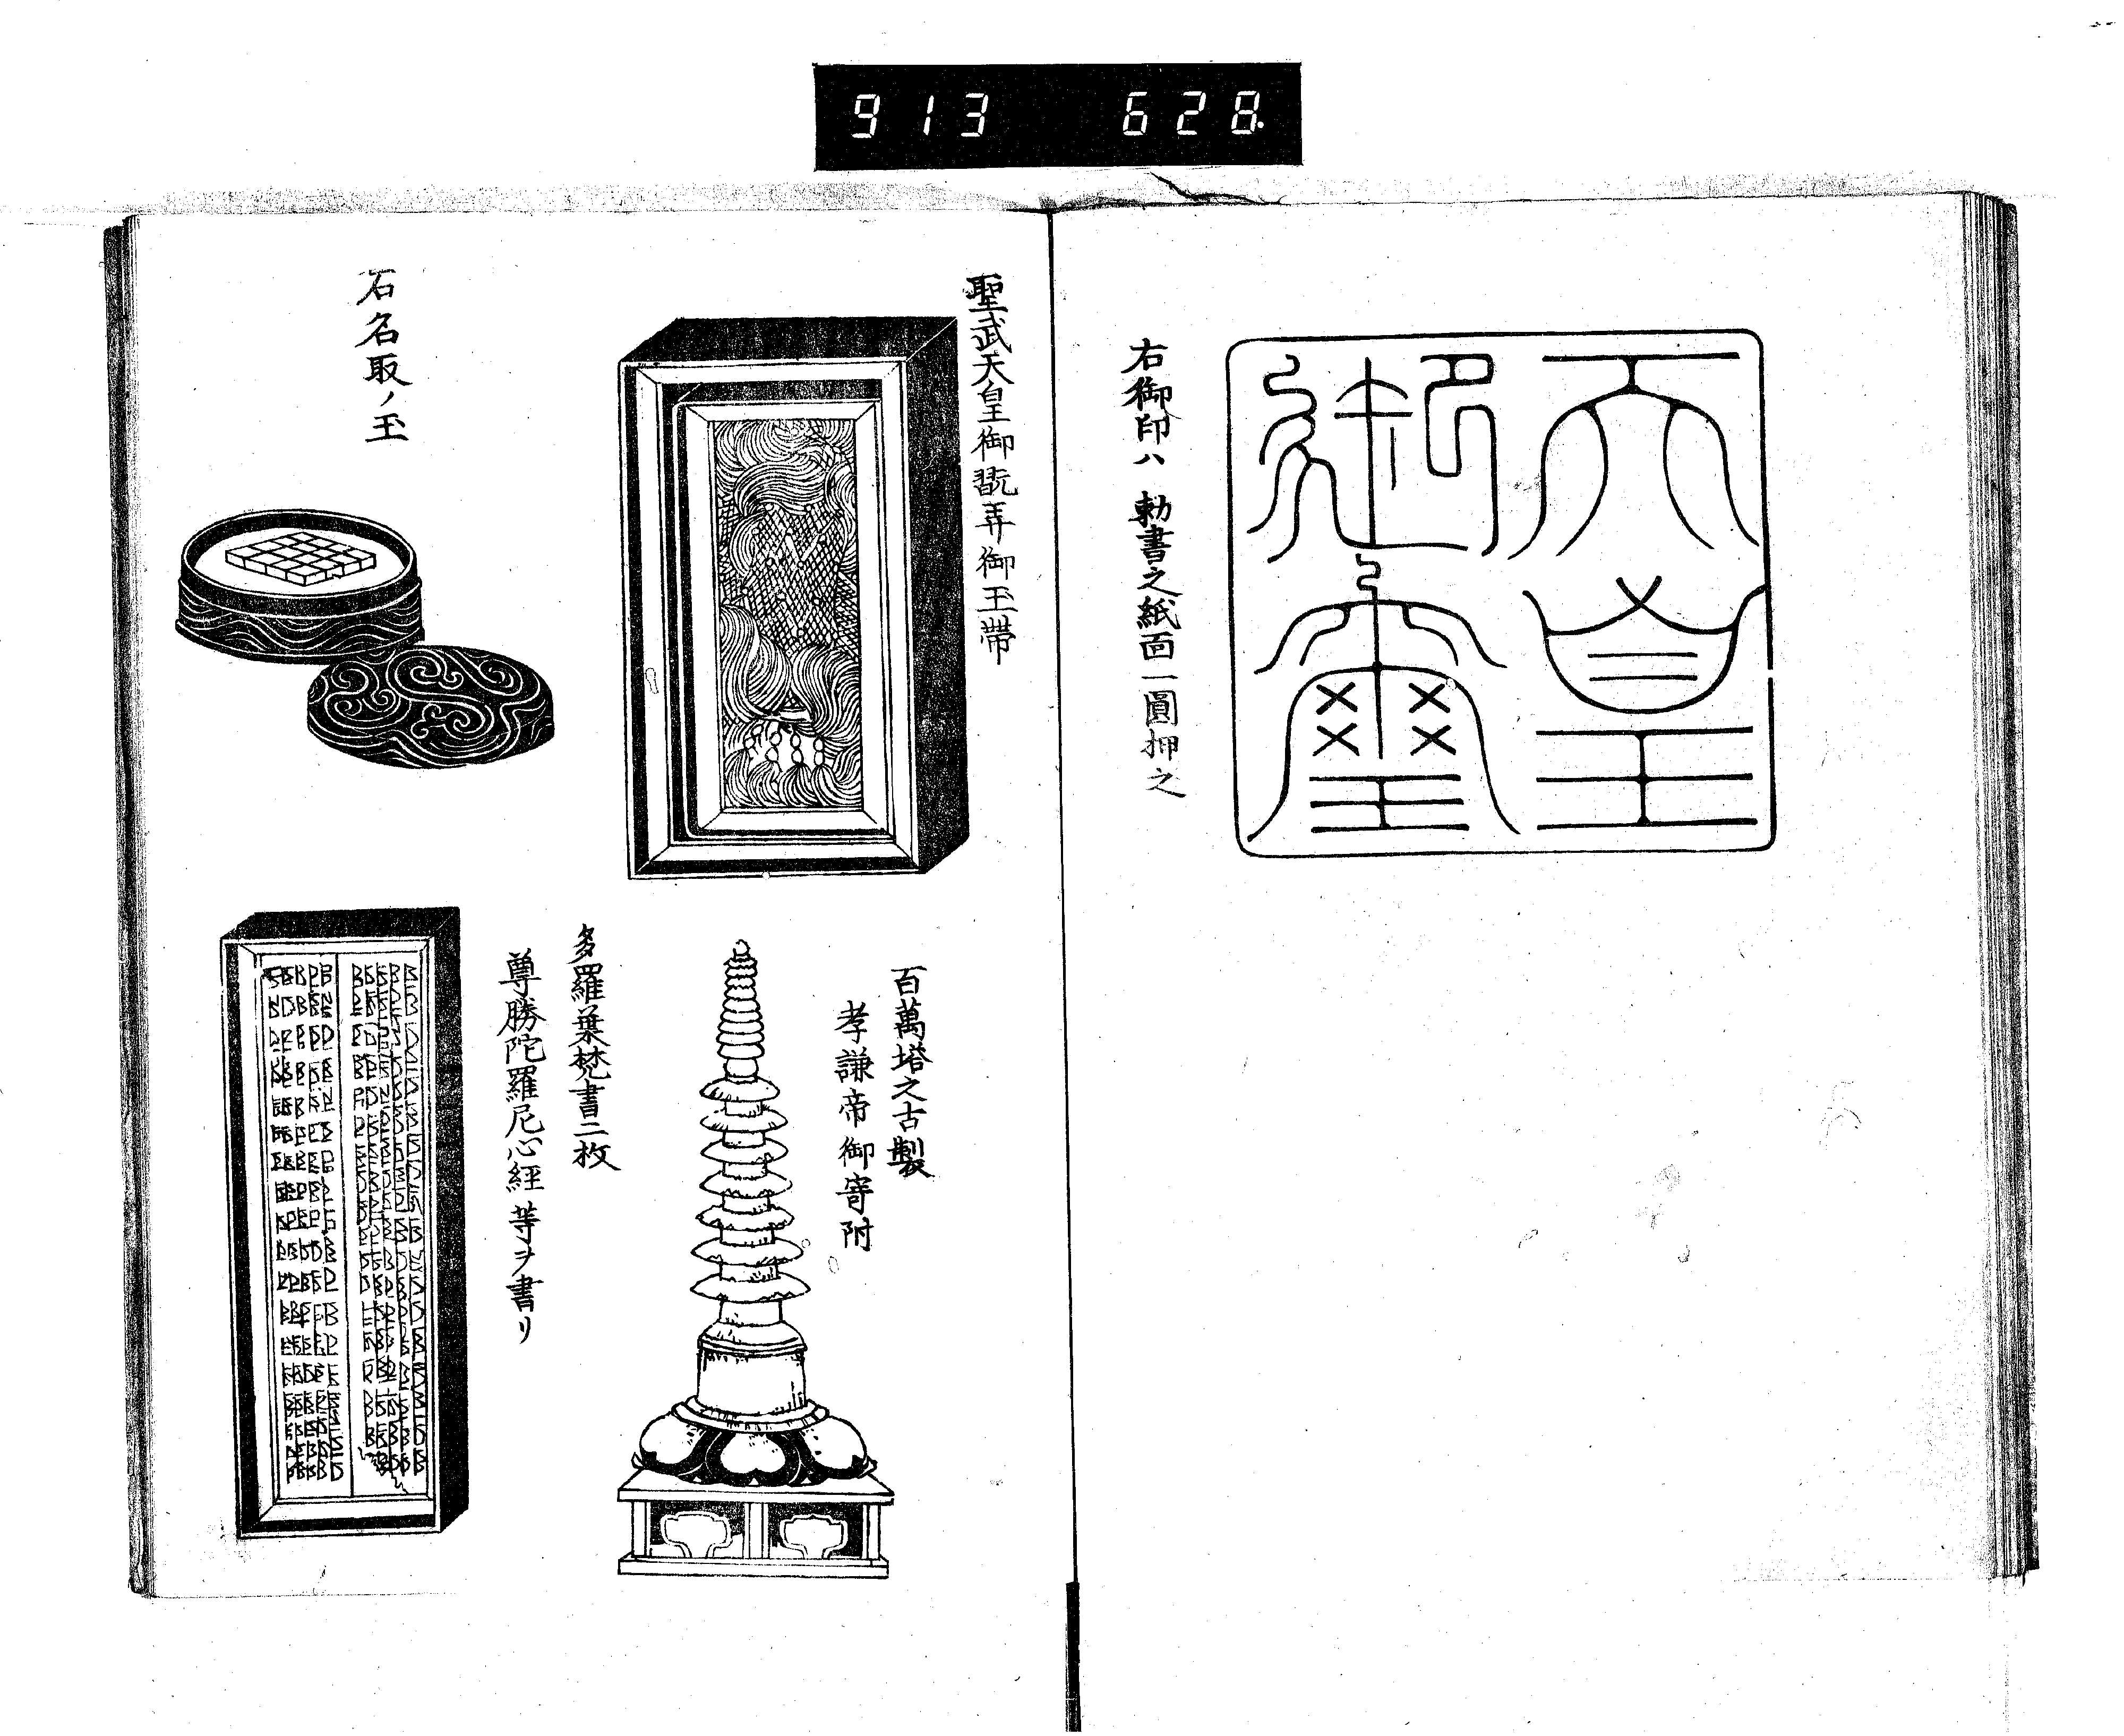 913 628.
天皇
御璽
右御印ハ 勅書之紙面一圓押之
聖武天皇御翫弄御玉帶
石名取ノ玉
百萬塔之古製
孝謙帝御寄附
多羅葉梵書二枚
尊勝陀羅尼心経等ヲ書リ